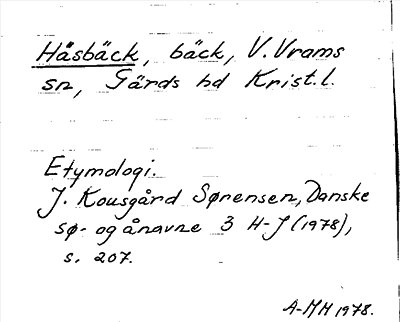 Håsbäck, bäck, V. Vrams
sn, Gärds hd Krist. l.
Etymologi.
J. Kousgård Sørensen, Danske
sø- og ånavne 3 H-J (1978),
s. 207.
A-MH 1978.